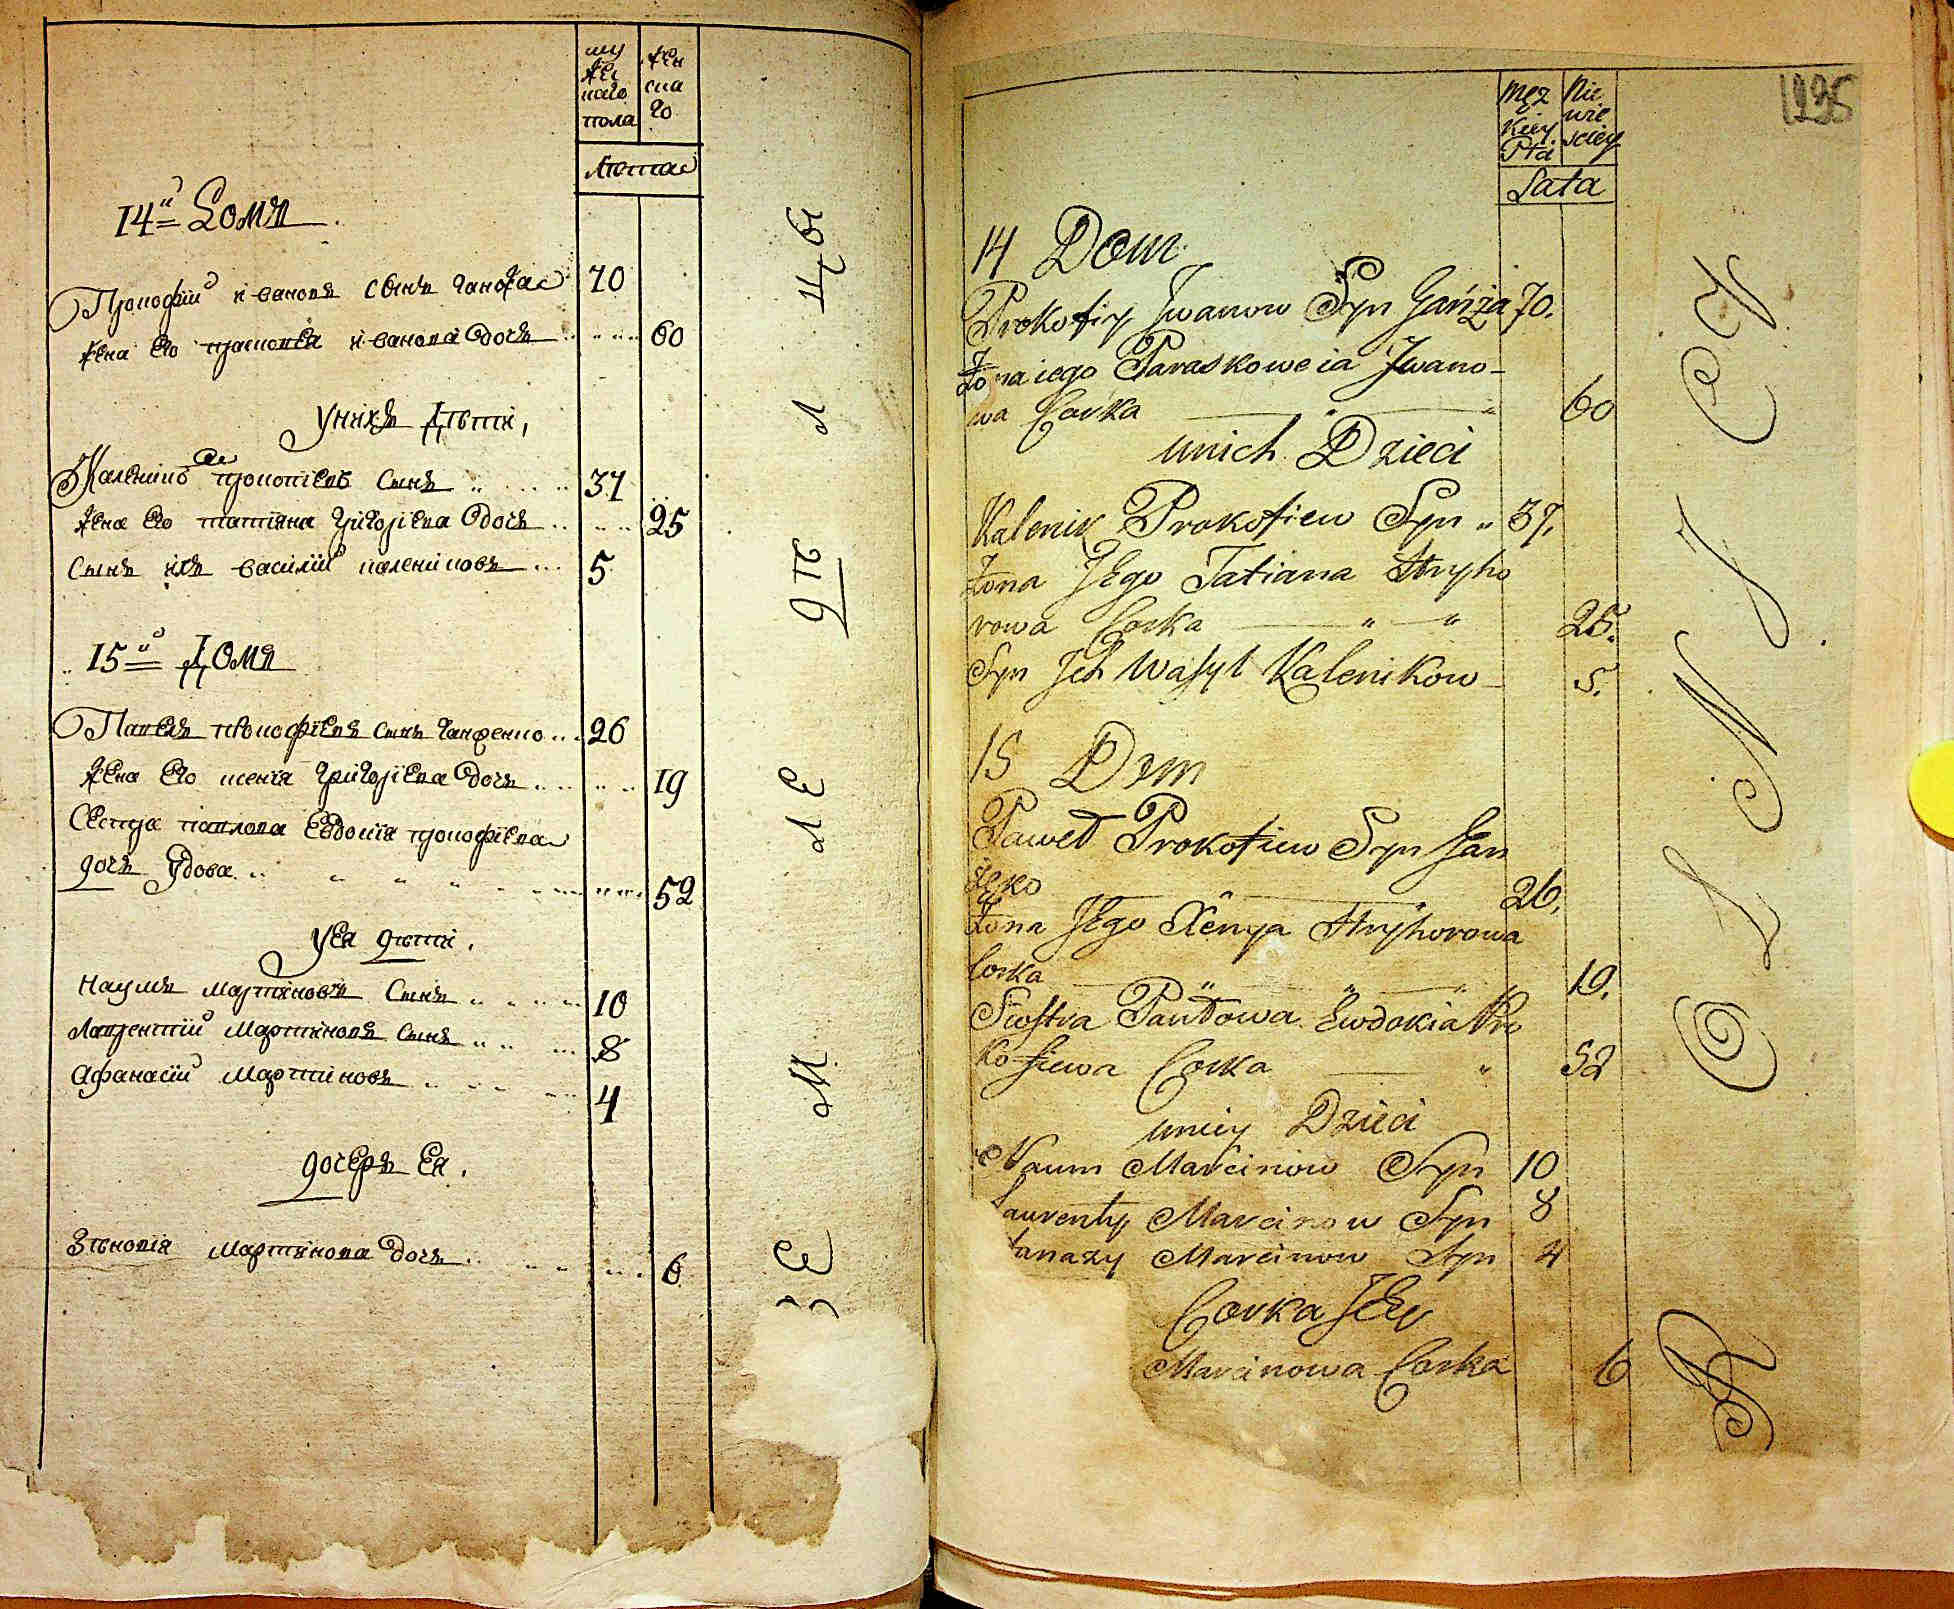 му
же
наго
пола
жен
ска
го
Лѣта
14й Домъ
Прокофій ивановъ сынъ ганжа 70
жена его прасковѣя иванова дочъ 60
у нихъ дѣти,
Каленикъ прокопіевъ сынъ 37
жена его татіяна григоріева дочъ 25
сынъ ихъ василій калениковъ 5
15й Домъ
Павелъ прокофіевъ сынъ ганженко 26
жена его ксенія григоріева дочъ 19
Сестра павлова Евдокія прокофіева
дочъ удова 52
у ея дѣти.
Наумъ мартиновъ сынъ 10
Лаврентій мартиновъ сынъ 8
Афанасій мартиновъ 4
дочеръ ея.
Зѣновія мартинова дочъ 6
ЗЕ М ЛЕ дѣ Л Цы
1235
Męz
kiey
Płci
Nie
wie
sciey
Lata
14 Dom
Prokofiy Iwanow Syn Gańża 70.
Żona iego Paraskoweia Iwano-
wa Corka 60
u nich Dzieci
Kalenik Prokofiew Syn 37.
Żona Jego Tatiana Hryho
rowa Corka 25.
Syn Ich Wasyl Kalenikow 5.
15 Dom
Paweł Prokofiew Syn Gan
żęko 26.
Żona Jego Xenya Hryhorowa
Corka 19.
Siostra Pawłowa Ewdokia Pro
kofiewa Corka 52
u niey Dzieci
Naum Marcinow Syn 10
Laurenty Marcinow Syn 8
fanazy Marcinow Syn 4
Corka Jey
Marcinowa Corka 6
R O L N I C Y